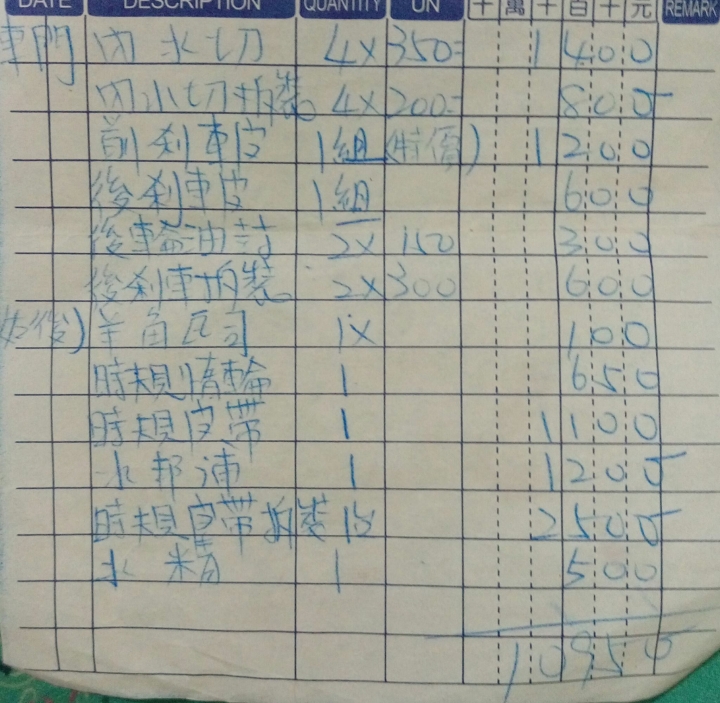 DATE DESCRIPTION QUANTITY UN 十 萬 千 百 十 元 REMARK
車門 內水切 4x 350= 1400
內水切拆裝 4x 200= 800
前刹車皮 1組 (特價) 1200
後刹車皮 1組 600
後輪油封 2x 150 300
後刹車拆裝 2x 300 600
後) 羊角瓦司 1x 100
時規惰輪 1 650
時規皮帶 1 1100
水邦浦 1 1200
時規皮帶拆裝 1 2500
水精 1 500
10950